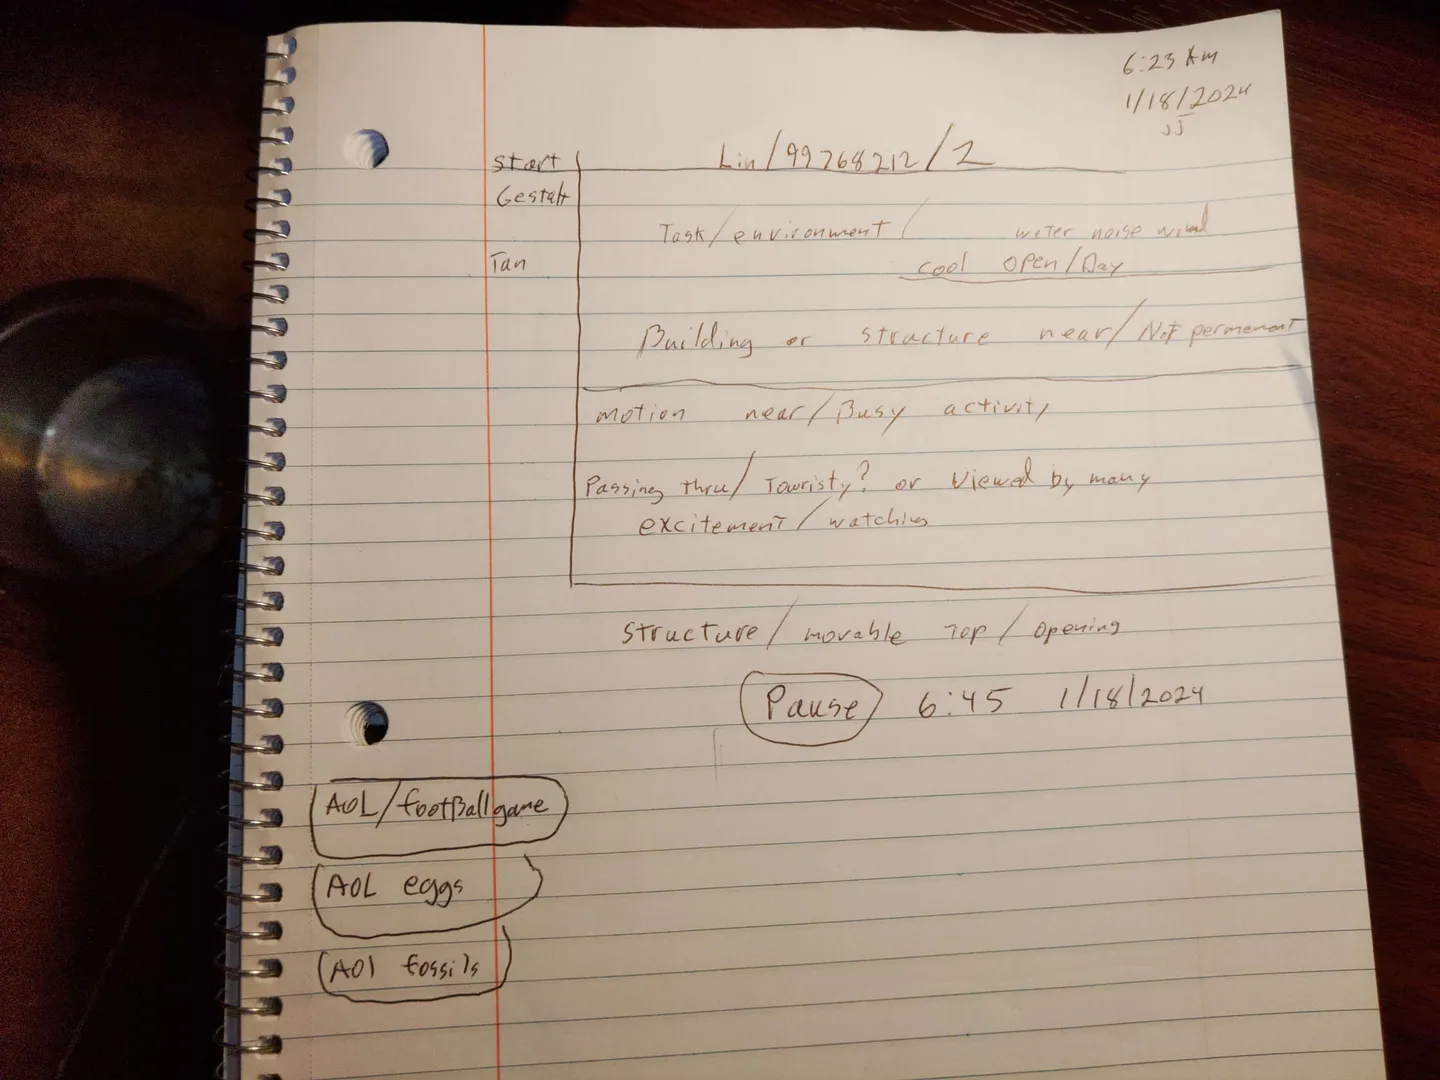 6:23 AM
1/18/2024
JJ
Start
Lin/99768212/2
Gestalt
Task/environment/ water noise wind
Tan
cool open/Day
Building or structure near/Not permenent
motion near/Busy activity
Passing thru/Touristy? or viewed by many
excitement/watching
structure/movable Top/opening
Pause 6:45 1/18/2024
AOL/football game
AOL eggs
AOl fossils